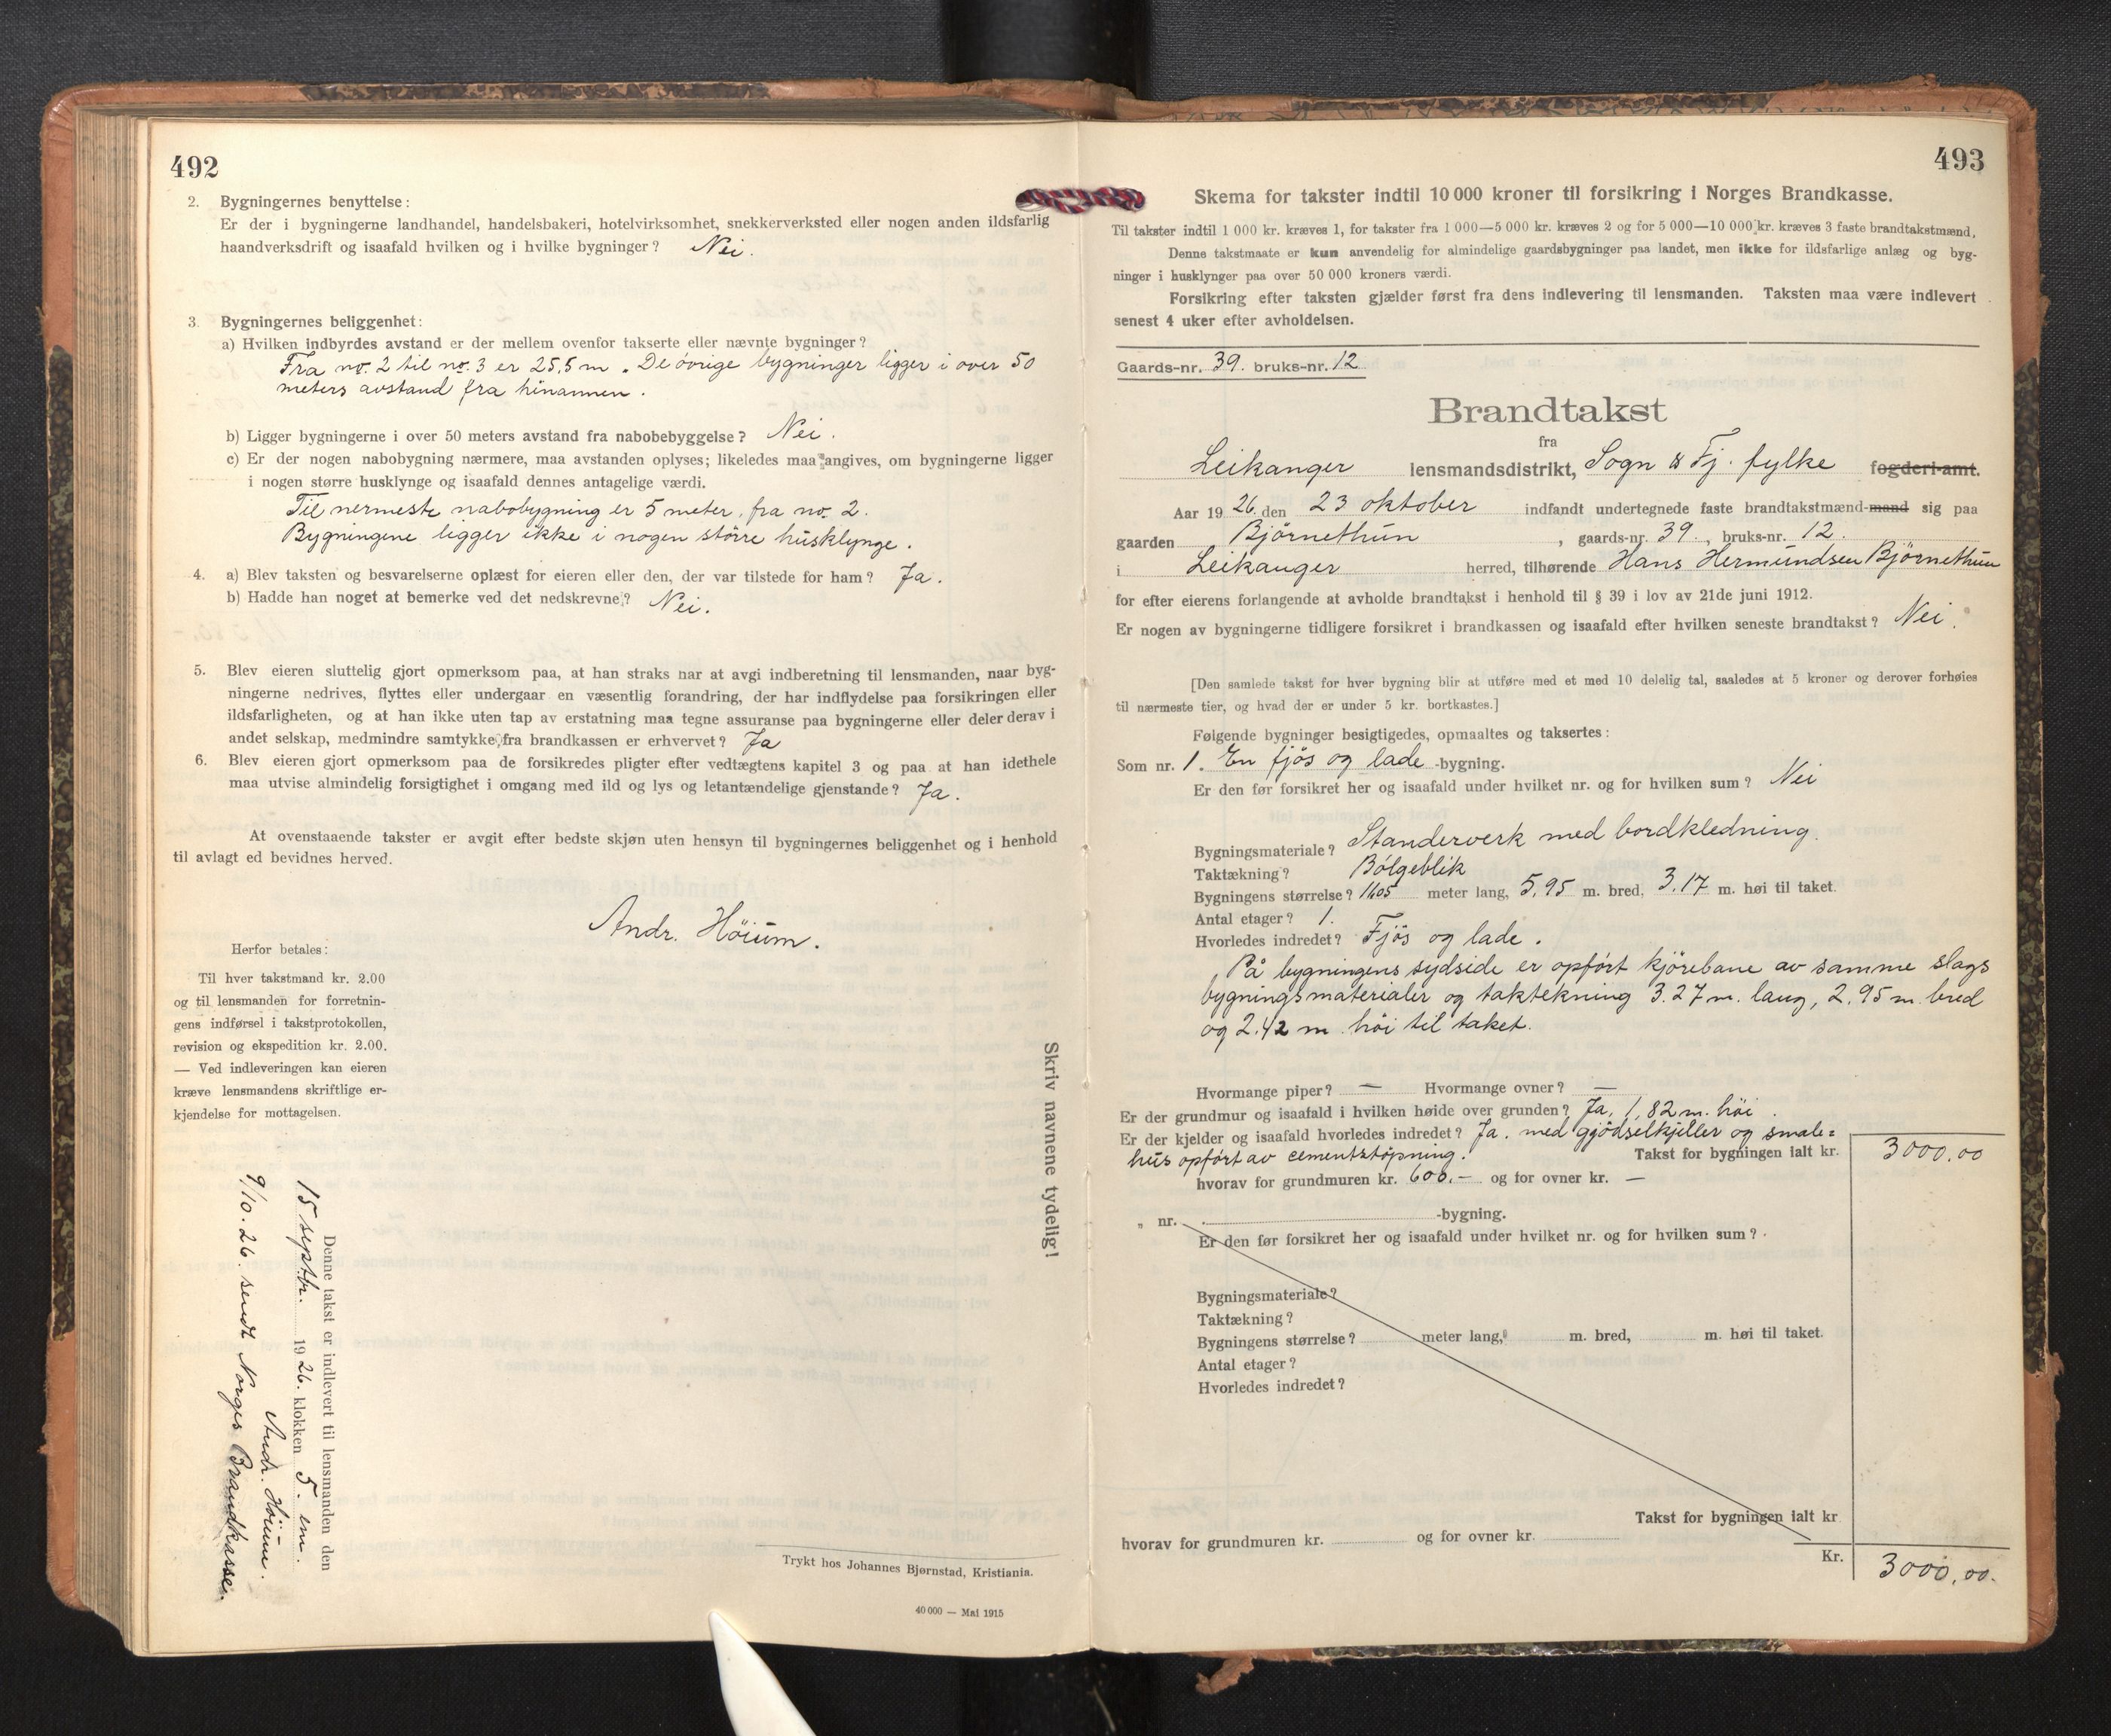 492
2. Bygningernes benyttelse:
Er der i bygningerne landhandel, handelsbakeri, hotelvirksomhet, snekkerverksted eller nogen anden ildsfarlig
haandverksdrift og isaafald hvilken og i hvilke bygninger? Nei.
3. Bygningernes beliggenhet:
a) Hvilken indbyrdes avstand er der mellem ovenfor takserte eller nævnte bygninger?
Fra no. 2 til no. 3 er 25,5 m. De övrige bygninger ligger i over 50
meters avstand fra hinannen.
b) Ligger bygningerne i over 50 meters avstand fra nabobebyggelse? Nei.
c) Er der nogen nabobygning nærmere, maa avstanden oplyses; likeledes maa angives, om bygningerne ligger
i nogen større husklynge og isaafald dennes antagelige værdi.
Til nermeste nabobygning er 5 meter, fra no. 2.
Bygningene ligger ikke i nogen större husklynge.
4. a) Blev taksten og besvarelserne oplæst for eieren eller den, der var tilstede for ham? Ja.
b) Hadde han noget at bemerke ved det nedskrevne? Nei.
5. Blev eieren sluttelig gjort opmerksom paa, at han straks nar at avgi indberetning til lensmanden, naar byg-
ningerne nedrives, flyttes eller undergaar en væsentlig forandring, der har indflydelse paa forsikringen eller
ildsfarligheten, og at han ikke uten tap av erstatning maa tegne assuranse paa bygningerne eller deler derav i
andet selskap, medmindre samtykke fra brandkassen er erhvervet? Ja
6. Blev eieren gjort opmerksom paa de forsikredes pligter efter vedtægtens kapitel 3 og paa at han idethele
maa utvise almindelig forsigtighet i omgang med ild og lys og letantændelige gjenstande? Ja.
At ovenstaaende takster er avgit efter bedste skjøn uten hensyn til bygningernes beliggenhet og i henhold
til avlagt ed bevidnes herved.
Andr. Höium.
Herfor betales:
Til hver takstmand kr. 2.00
og til lensmanden for forretnin-
gens indførsel i takstprotokollen,
revision og ekspedition kr. 2.00.
— Ved indleveringen kan eieren
kræve lensmandens skriftlige er-
kjendelse for mottagelsen.
Denne takst er indlevert til lensmanden den
15 septbr. 1926. klokken 5. em.
Andr. Höium.
9/10. 26. sendt Norges Brandkasse.
Skriv navnene tydelig!
Trykt hos Johannes Bjørnstad, Kristiania.
40 000 — Mai 1915
493
Skema for takster indtil 10 000 kroner til forsikring i Norges Brandkasse.
Til takster indtil 1 000 kr. kræves 1, for takster fra 1 000—5 000 kr. kræves 2 og for 5 000—10 000 kr. kræves 3 faste brandtakstmænd.
Denne takstmaate er kun anvendelig for almindelige gaardsbygninger paa landet, men ikke for ildsfarlige anlæg og byg-
ninger i husklynger paa over 50 000 kroners værdi.
Forsikring efter taksten gjælder først fra dens indlevering til lensmanden. Taksten maa være indlevert
senest 4 uker efter avholdelsen.
Gaards-nr. 39. bruks-nr. 12
Brandtakst
fra
Leikanger lensmandsdistrikt, Sogn & Fj. fylke fogderi-amt.
Aar 1926. den 23 oktober indfandt undertegnede faste brandtakstmænd-mand sig paa
gaarden Björnethun, gaards-nr. 39., bruks-nr. 12.
i Leikanger herred, tilhørende Hans Hermundsen Björnethun
for efter eierens forlangende at avholde brandtakst i henhold til § 39 i lov av 21de juni 1912.
Er nogen av bygningerne tidligere forsikret i brandkassen og isaafald efter hvilken seneste brandtakst? Nei.
[Den samlede takst for hver bygning blir at utføre med et med 10 delelig tal, saaledes at 5 kroner og derover forhøies
til nærmeste tier, og hvad der er under 5 kr. bortkastes.]
Følgende bygninger besigtigedes, opmaaltes og taksertes:
Som nr. 1. En fjös og lade -bygning.
Er den før forsikret her og isaafald under hvilket nr. og for hvilken sum? Nei
Bygningsmateriale? Standerverk med bordkledning.
Taktækning? Bölgeblik
Bygningens størrelse? 11.05 meter lang, 5,95 m. bred, 3.17 m. høi til taket.
Antal etager? 1.
Hvorledes indredet? Fjös og lade.
På bygningens sydside er opfört kjörebane av samme slags
bygningsmaterialer og taktekning 3.27 m. lang, 2.95 m. bred
og 2.42 m. höi til taket.
Hvormange piper? — Hvormange ovner? —
Er der grundmur og isaafald i hvilken høide over grunden? Ja. 1,82 m. höi.
Er der kjelder og isaafald hvorledes indredet? Ja. med gjödselkjeller og smale=
hus opfört av cementstöpning. Takst for bygningen ialt kr. 3000.00
hvorav for grundmuren kr. 600.— og for ovner kr. —
„ nr. -bygning.
Er den før forsikret her og isaafald under hvilket nr. og for hvilken sum?
Bygningsmateriale?
Taktækning?
Bygningens størrelse? meter lang, m. bred, m. høi til taket.
Antal etager?
Hvorledes indredet?
Takst for bygningen ialt kr
hvorav for grundmuren kr. og for ovner kr.
Kr. 3000.00.